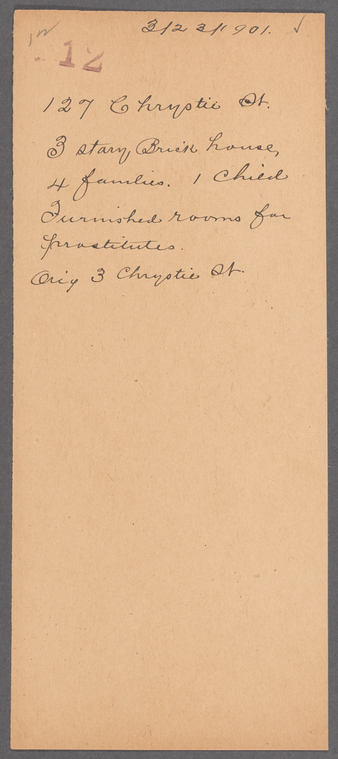 3/23/1901. ✓
12
127 Chrystie St.
3 story Brick house,
4 families. 1 Child
Furnished rooms for
prostitutes.
Orig 3 Chrystie St.